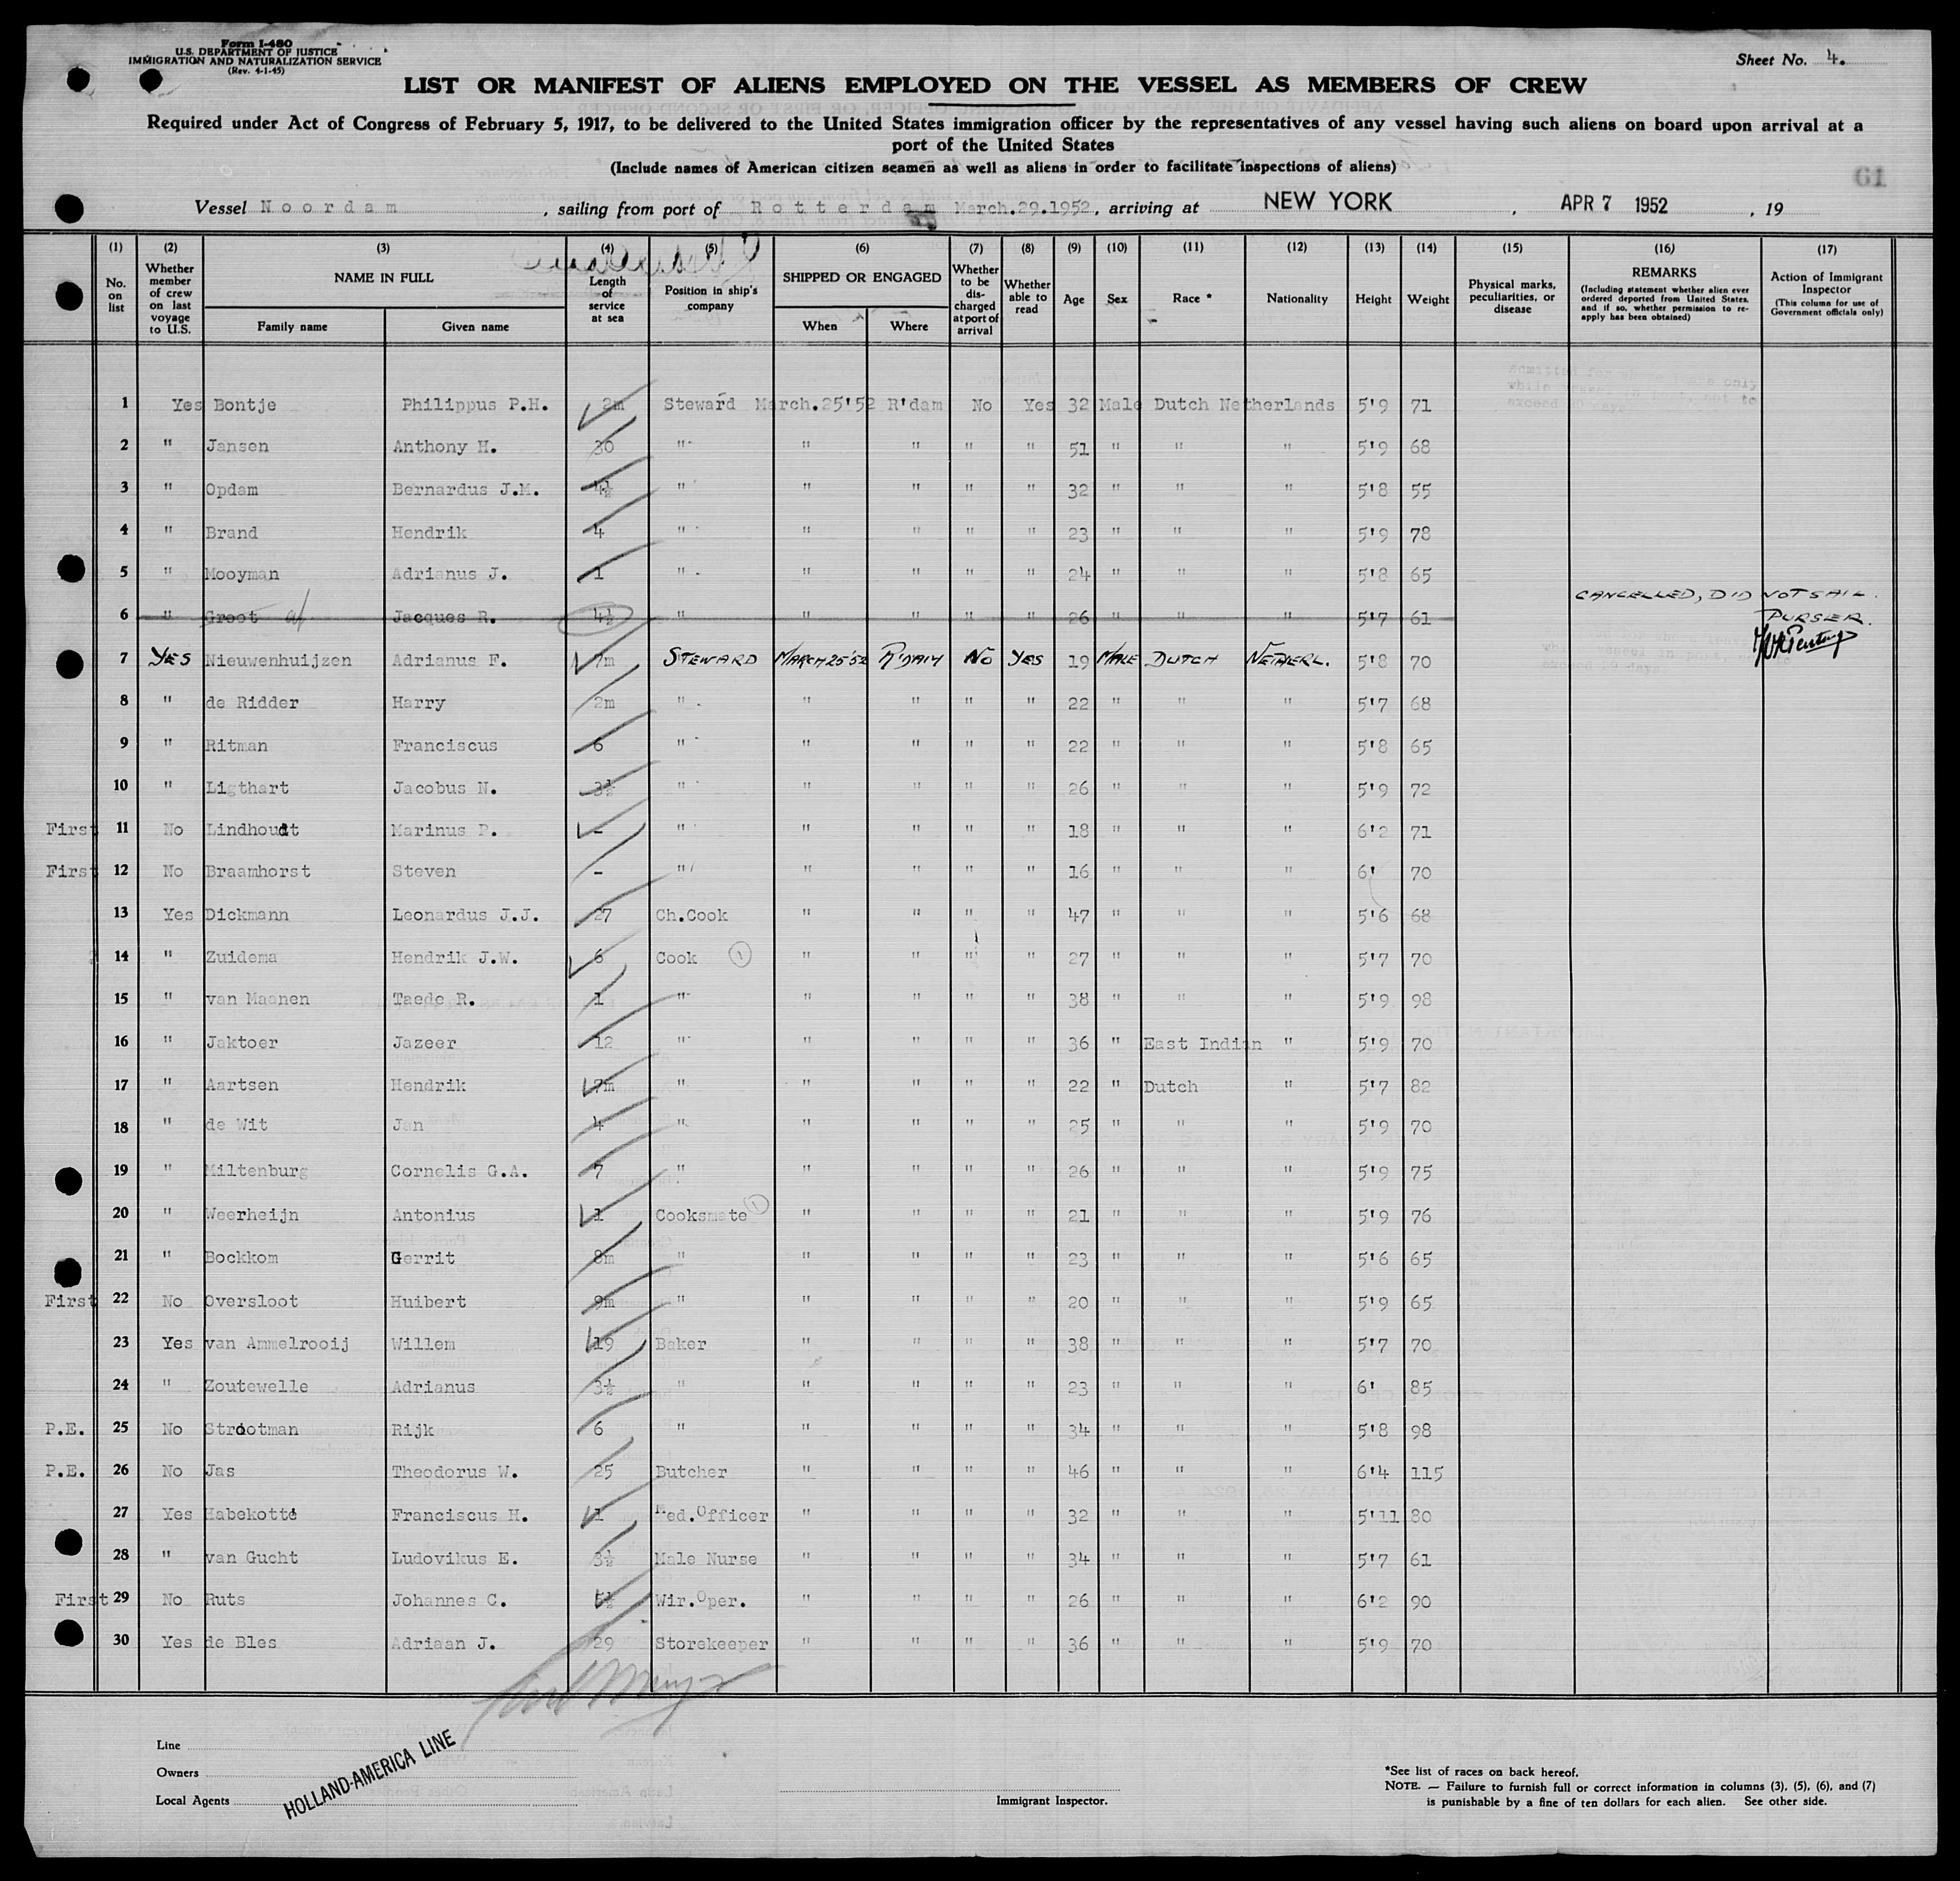 Form I-480
U.S. DEPARTMENT OF JUSTICE
IMMIGRATION AND NATURALIZATION SERVICE
(Rev. 4-1-45)
Sheet No. 4.
LIST OR MANIFEST OF ALIENS EMPLOYED ON THE VESSEL AS MEMBERS OF CREW
Required under Act of Congress of February 5, 1917, to be delivered to the United States immigration officer by the representatives of any vessel having such aliens on board upon arrival at a
port of the United States
(Include names of American citizen seamen as well as aliens in order to facilitate inspections of aliens)
61
Vessel Noordam , sailing from port of Rotterdam March.29.1952, arriving at NEW YORK , APR 7 1952 , 19
(1) (2) (3) (4) (5) (6) (7) (8) (9) (10) (11) (12) (13) (14) (15) (16) (17)
No. on list Whether member of crew on last voyage to U.S. NAME IN FULL Family name Given name Length of service at sea Position in ship's company SHIPPED OR ENGAGED When Where Whether to be discharged at port of arrival Whether able to read Age Sex Race * Nationality Height Weight Physical marks, peculiarities, or disease REMARKS (Including statement whether alien ever ordered deported from United States, and if so, whether permission to re-apply has been obtained) Action of Immigrant Inspector (This column for use of Government officials only)
1 Yes Bontje Philippus P.H. 2m Steward March.25'52 R'dam No Yes 32 Male Dutch Netherlands 5'9 71
2 " Jansen Anthony H. 30 " " " " " 51 " " " 5'9 68
3 " Opdam Bernardus J.M. 4½ " " " " " 32 " " " 5'8 55
4 " Brand Hendrik 4 " " " " " 23 " " " 5'9 78
5 " Mooyman Adrianus J. 1 " " " " " 24 " " " 5'8 65
CANCELLED, DID NOT SAIL.
6 " Groot Jacques R. 4½ " " " " " 26 " " " 5'7 61 PURSER.
7 YES Nieuwenhuijzen Adrianus F. 7m STEWARD MARCH 25'52 R'DAM NO YES 19 MALE DUTCH NETHERL. 5'8 70
8 " de Ridder Harry 2m " " " " " 22 " " " 5'7 68
9 " Ritman Franciscus 6 " " " " " 22 " " " 5'8 65
10 " Ligthart Jacobus N. 3½ " " " " " 26 " " " 5'9 72
First 11 No Lindhoudt Marinus P. - " " " " " 18 " " " 6'2 71
First 12 No Braamhorst Steven - " " " " " 16 " " " 6' 70
13 Yes Dickmann Leonardus J.J. 27 Ch.Cook " " " " 47 " " " 5'6 68
14 " Zuidema Hendrik J.W. 6 Cook 1 " " " " 27 " " " 5'7 70
15 " van Maanen Taede R. 1 " " " " " 38 " " " 5'9 98
16 " Jaktoer Jazeer 12 " " " " " 36 " East Indian " 5'9 70
17 " Aartsen Hendrik 7m " " " " " 22 " Dutch " 5'7 82
18 " de Wit Jan 4 " " " " " 25 " " " 5'9 70
19 " Miltenburg Cornelis G.A. 7 " " " " " 26 " " " 5'9 75
20 " Weerheijn Antonius 1 Cooksmate 1 " " " " 21 " " " 5'9 76
21 " Bockkom Gerrit 8m " " " " " 23 " " " 5'6 65
First 22 No Oversloot Huibert 9m " " " " " 20 " " " 5'9 65
23 Yes van Ammelrooij Willem 19 Baker " " " " 38 " " " 5'7 70
24 " Zoutewelle Adrianus 3½ " " " " " 23 " " " 6' 85
P.E. 25 No Strootman Rijk 6 " " " " " 34 " " " 5'8 98
P.E. 26 No Jas Theodorus W. 25 Butcher " " " " 46 " " " 6'4 115
27 Yes Habekotté Franciscus H. 1 Med.Officer " " " " 32 " " " 5'11 80
28 " van Gucht Ludovikus E. 3½ Male Nurse " " " " 34 " " " 5'7 61
First 29 No Ruts Johannes C. 5½ Wir.Oper. " " " " 26 " " " 6'2 90
30 Yes de Bles Adriaan J. 29 Storekeeper " " " " 36 " " " 5'9 70
Line
Owners
Local Agents
HOLLAND-AMERICA LINE
Immigrant Inspector.
*See list of races on back hereof.
NOTE. — Failure to furnish full or correct information in columns (3), (5), (6), and (7)
is punishable by a fine of ten dollars for each alien. See other side.